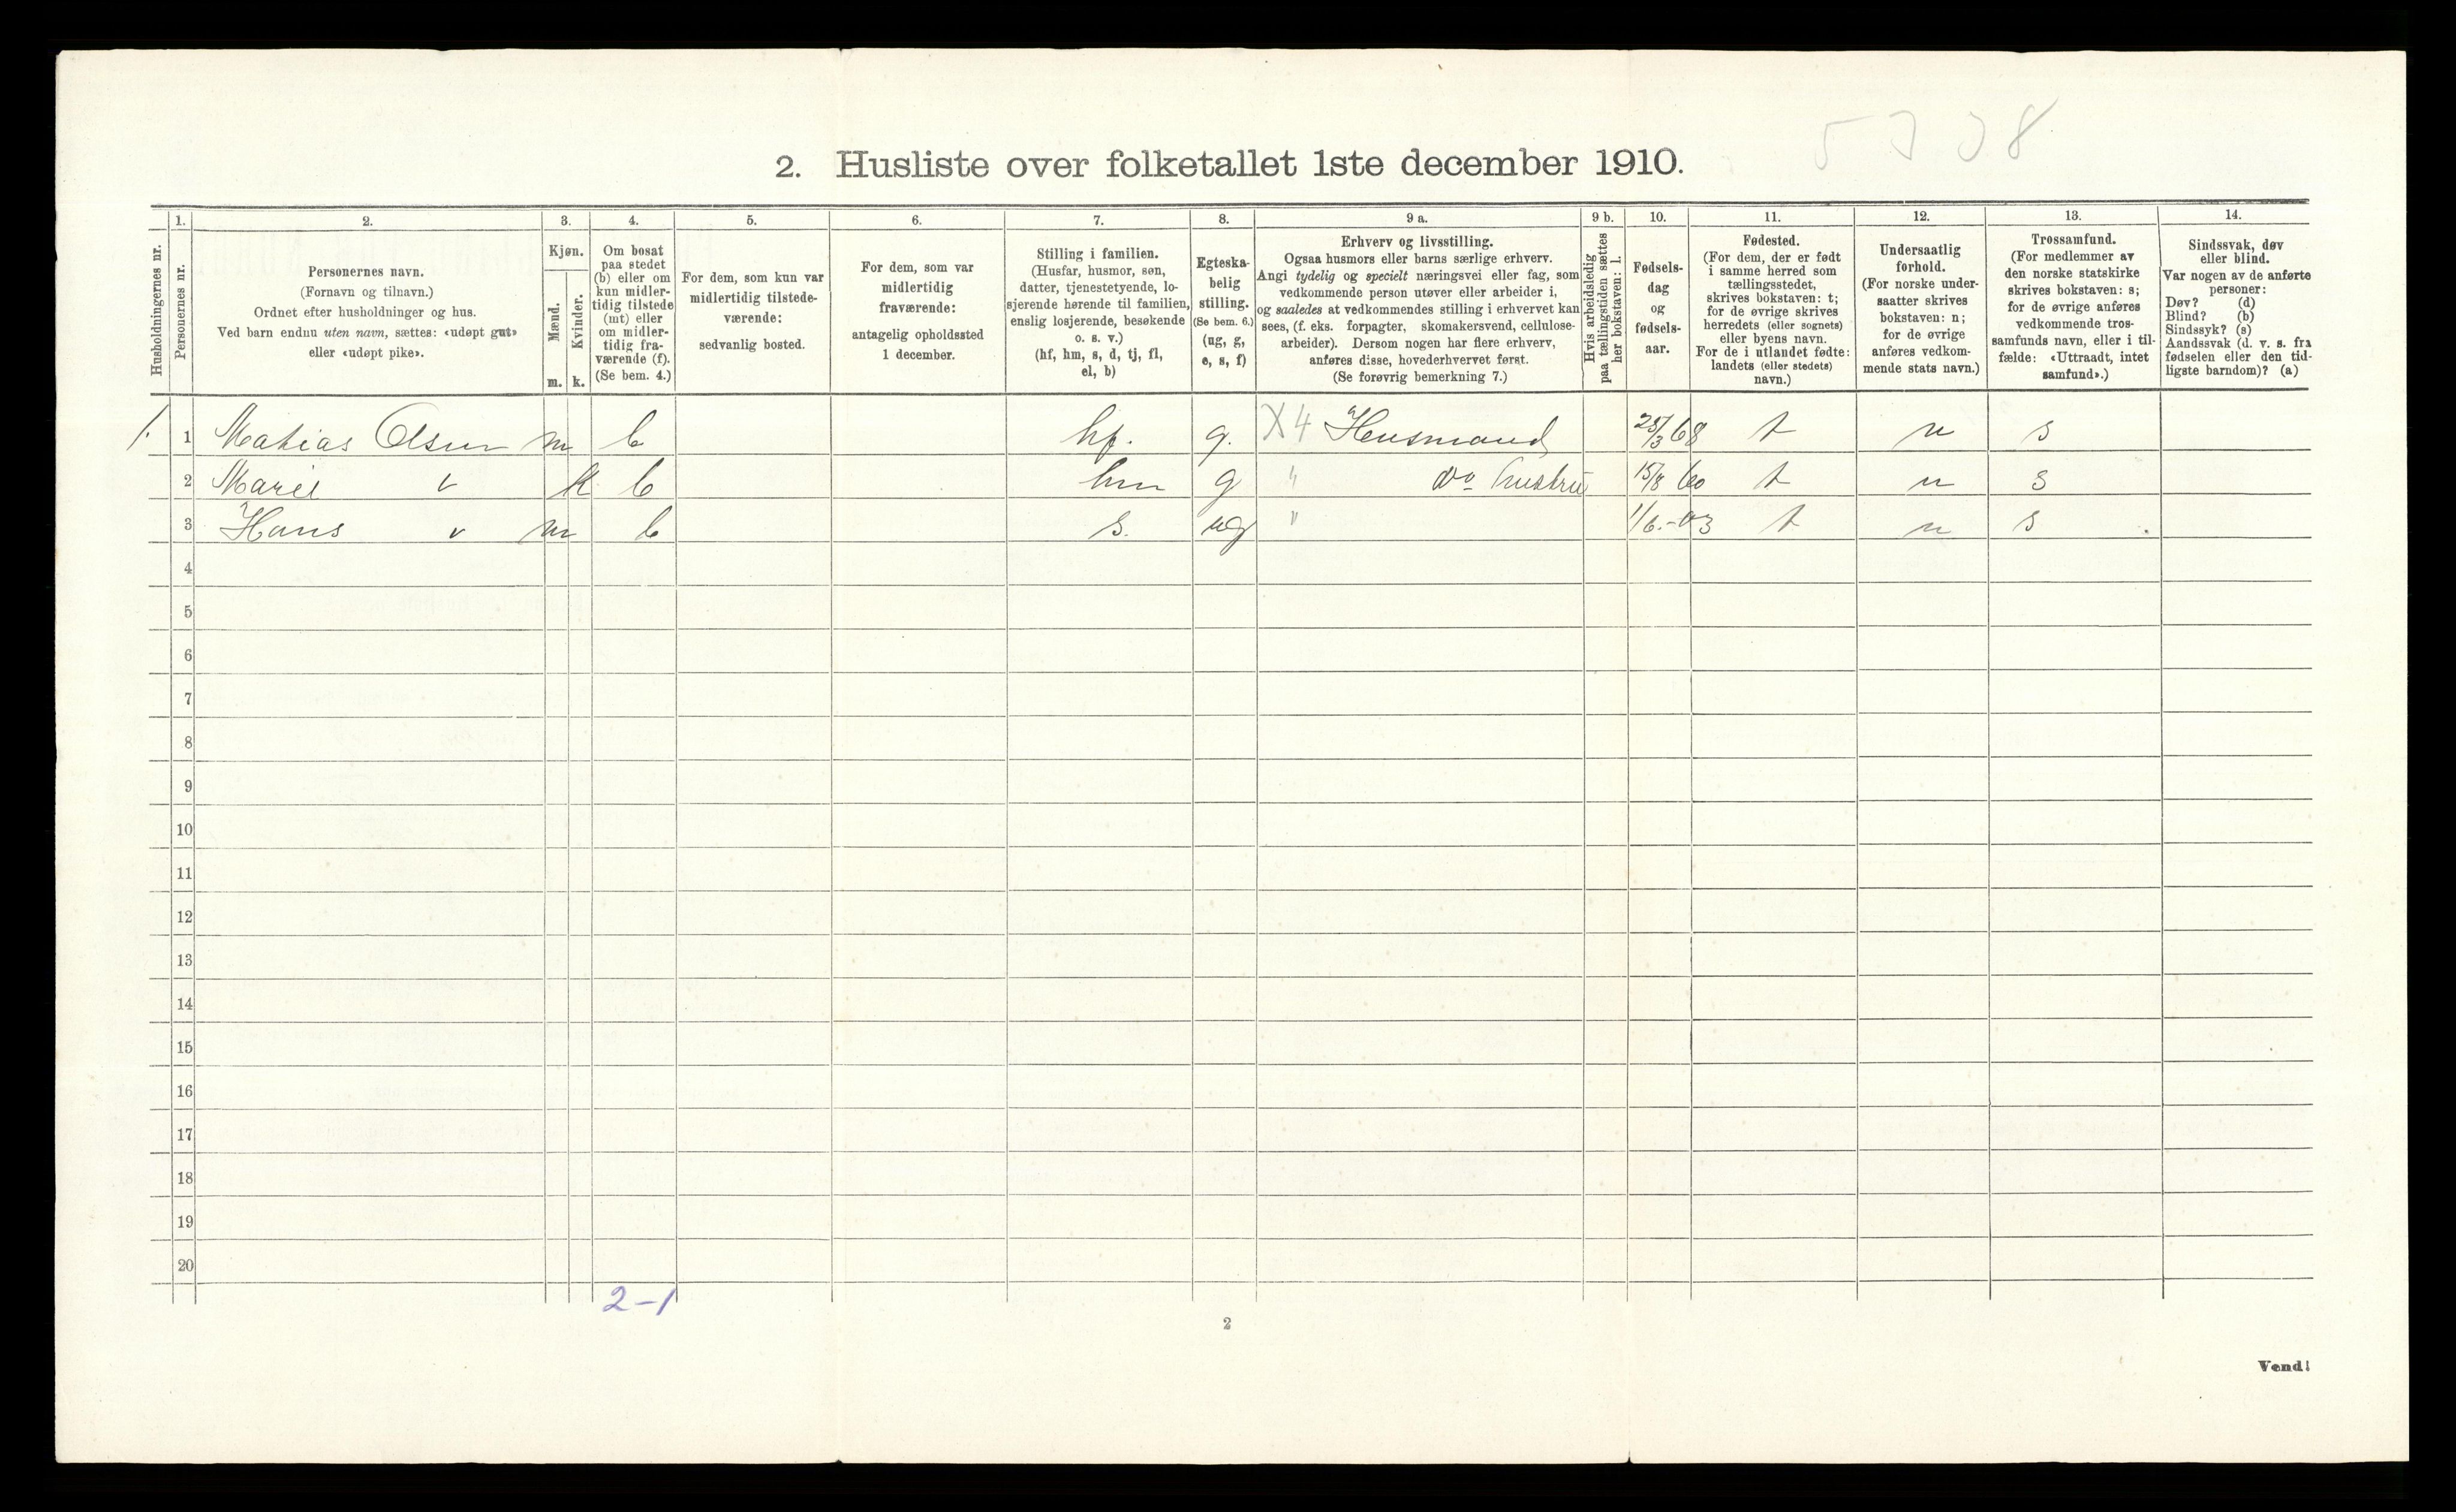 5338
2. Husliste over folketallet 1ste december 1910.
Husholdningernes nr.
1.
Personernes nr.
2.
Personernes navn.
(Fornavn og tilnavn.)
Ordnet efter husholdninger og hus.
Ved barn endnu uten navn, sættes: «udøpt gut»
eller «udøpt pike».
3.
Kjøn.
Mænd.
m.
Kvinder.
k.
4.
Om bosat
paa stedet
(b) eller om
kun midler-
tidig tilstede
(mt) eller
om midler-
tidig fra-
værende (f).
(Se bem. 4.)
5.
For dem, som kun var
midlertidig tilstede-
værende:
sedvanlig bosted.
6.
For dem, som var
midlertidig
fraværende:
antagelig opholdssted
1 december.
7.
Stilling i familien.
(Husfar, husmor, søn,
datter, tjenestetyende, lo-
sjerende hørende til familien,
enslig losjerende, besøkende
o. s. v.)
(hf, hm, s, d, tj, fl,
el, b)
8.
Egteska-
belig
stilling.
(Se bem. 6.)
(ug, g,
e, s, f)
9 a.
Erhverv og livsstilling.
Ogsaa husmors eller barns særlige erhverv.
Angi tydelig og specielt næringsvei eller fag, som
vedkommende person utøver eller arbeider i,
og saaledes at vedkommendes stilling i erhvervet kan
sees, (f. eks. forpagter, skomakersvend, cellulose-
arbeider). Dersom nogen har flere erhverv,
anføres disse, hovederhvervet først.
(Se forøvrig bemerkning 7.)
9 b.
Hvis arbeidsledig
paa tællingstiden sættes
her bokstaven: l.
10.
Fødsels-
dag
og
fødsels-
aar.
11.
Fødested.
(For dem, der er født
i samme herred som
tællingsstedet,
skrives bokstaven: t;
for de øvrige skrives
herredets (eller sognets)
eller byens navn.
For de i utlandet fødte:
landets (eller stedets)
navn.)
12.
Undersaatlig
forhold.
(For norske under-
saatter skrives
bokstaven: n;
for de øvrige
anføres vedkom-
mende stats navn.)
13.
Trossamfund.
(For medlemmer av
den norske statskirke
skrives bokstaven: s;
for de øvrige anføres
vedkommende tros-
samfunds navn, eller i til-
fælde: «Uttraadt, intet
samfund».)
14.
Sindssvak, døv
eller blind.
Var nogen av de anførte
personer:
Døv? (d)
Blind? (b)
Sindssyk? (s)
Aandssvak (d. v. s. fra
fødselen eller den tid-
ligste barndom)? (a)
1. 1 Mathias Olsen m b hf. g. X4 Husmand 25/3 68 t n s
2 Mariel " k b hm g " Do hustru 15/8 60 t n s
3 Hans " m b s. ug " 1/6.-03 t n s
4
5
6
7
8
9
10
11
12
13
14
15
16
17
18
19
20
2-1
2
Vend!